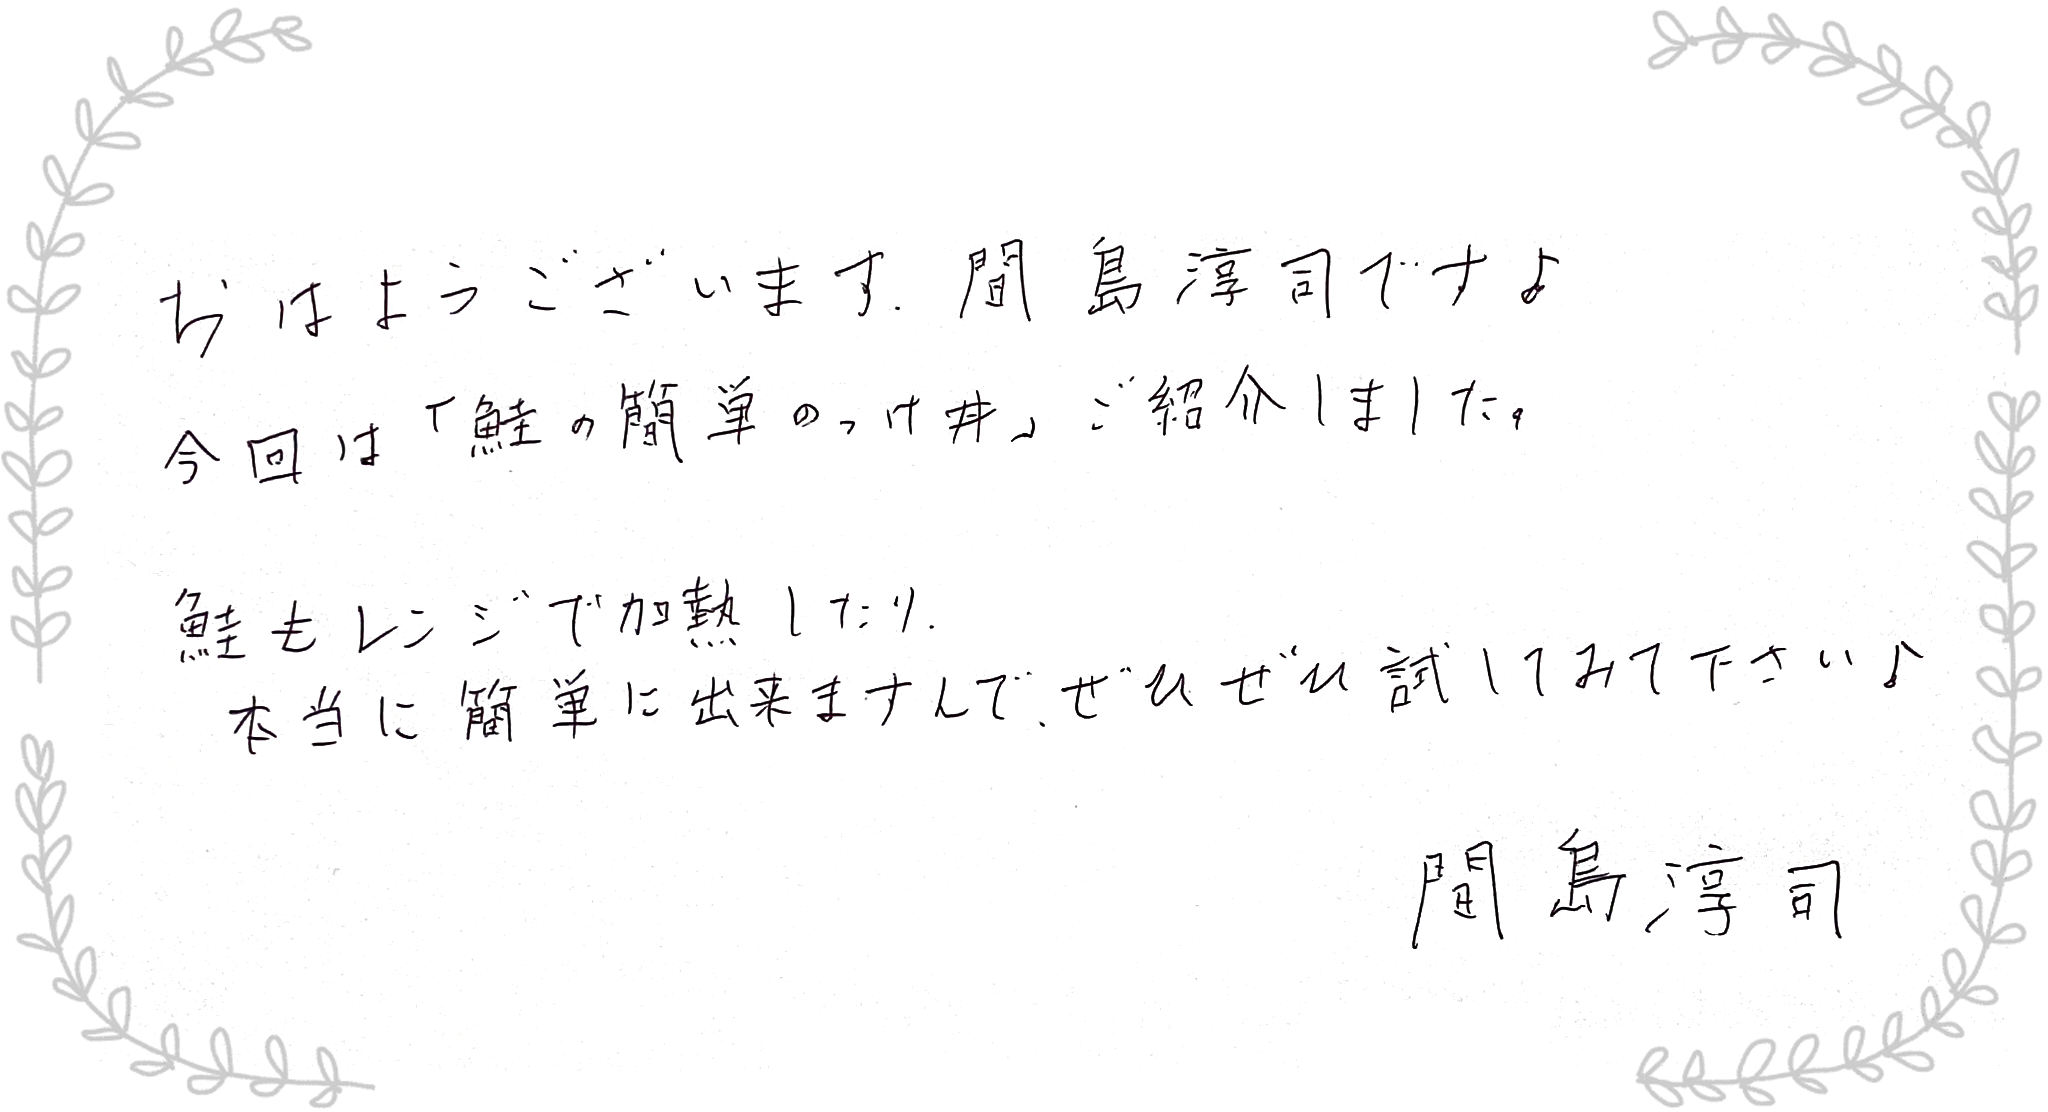 おはようございます.間島淳司です♪
今回は「鮭の簡単のっけ丼」ご紹介しました。
鮭もレンジで加熱したり.
本当に簡単に出来ますんで.ぜひぜひ試してみて下さい♪
間島淳司